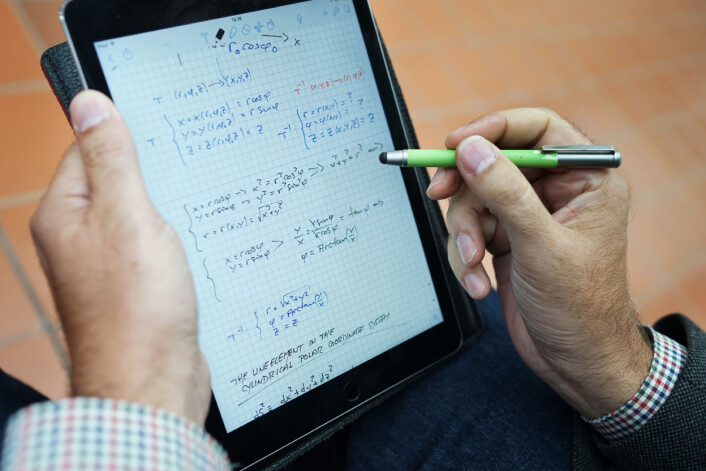 r₀cosφ₀ → x
T (r,φ,z) → (x,y,z)
T⁻¹ (x,y,z) → (r,φ,z)
T { x = x(r,φ,z) = rcosφ
y = y(r,φ,z) = rsinφ
z = z(r,φ,z) = z
T⁻¹ { r = r(x,y) = ?
φ = φ(x,y) = ?
z = z(x,y,z) = ?
{ x = rcosφ → x² = r²cos²φ
y = rsinφ → y² = r²sin²φ → x²+y² = r² ⇒
r = r(x,y) = √x²+y²
{ x = rcosφ
y = rsinφ > y/x = rsinφ/rcosφ = tanφ ⇒
φ = Arctan(y/x)
T⁻¹ { r = √x²+y²
φ = Arctan(y/x)
z = z
THE LINE ELEMENT IN THE
CYLINDRICAL POLAR COORDINATE SYSTEM
= dx² + dy² + dz²